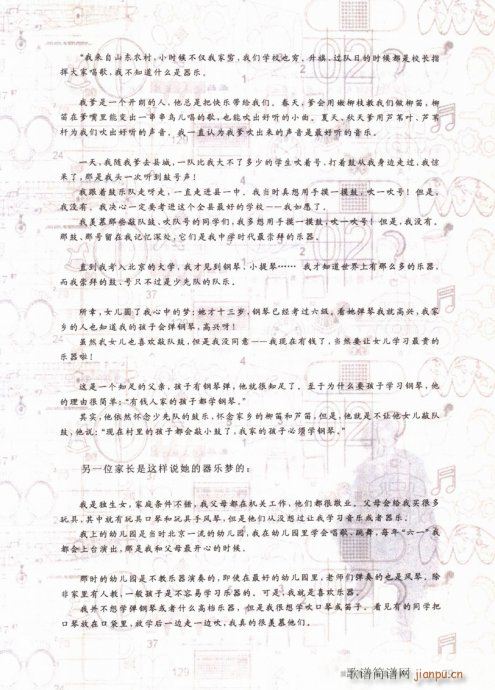 “我来自山东农村，小时候不仅我家穷，我们学校也穷。升旗、过队日的时候都是校长指
挥大家唱歌，我不知道什么是器乐。
我爹是一个开朗的人，他总是把快乐带给我们。春天，爹会用嫩柳枝教我们做柳笛，柳
笛在爹嘴里能变出一串串鸟儿唱的歌，也能吹出好听的小曲。夏天、秋天爹用芦苇叶、芦苇
杆为我们吹出好听的声音。我一直认为我爹吹出来的声音是最好听的音乐。
一天，我随我爹去县城，一队比我大不了多少的学生吹着号，打着鼓从我身边走过，我惊
呆了，那是我头一次听到鼓号声！
我跟着鼓乐队走呀走，一直走进县一中。我当时真想用手摸一摸鼓，吹一吹号！但是，
我没有。我决心一定要考进这个全县最好的学校——我如愿了。
我羡慕那些敲队鼓、吹队号的同学们，我多想用手摸一摸鼓，吹一吹号！但是，我没有，
那鼓、那号留在我记忆深处，它们是我中学时代最崇拜的乐器。
直到我考入北京的大学，我才见到钢琴、小提琴……我才知道世界上有那么多的乐器，
而我崇拜的鼓、号只不过是少先队的队乐。
所幸，女儿圆了我心中的梦：她才十三岁，钢琴已经考过六级。看她弹琴我就高兴，我家
乡的人也知道我的孩子会弹钢琴，高兴呀！
虽然我女儿也喜欢敲队鼓，但是我没同意——我现在有钱了，当然要让女儿学习最贵的
乐器啦！
这是一个知足的父亲，孩子有钢琴弹，他就很知足了。至于为什么要孩子学习钢琴，他
的理由很简单：“有钱人家的孩子都学钢琴。”
其实，他依然怀念少先队的鼓乐，怀念家乡的柳笛和芦笛，但是，他就是不让他女儿敲队
鼓，他说：“现在村里的孩子都会敲小鼓了，我家的孩子必须学钢琴。”
另一位家长是这样说她的器乐梦的：
我是独生女，家庭条件不错，我父母都在机关工作，他们都很敬业。父母会给我买很多
玩具，其中就有玩具口琴和玩具手风琴，但是他们从没想过让我学习音乐或者乐器。
我上的幼儿园是当时北京一流的幼儿园，我在幼儿园里学会唱歌、跳舞，每年“六一”我
都会上台演出，那是我和父母最开心的时候。
那时的幼儿园是不教乐器演奏的，即使在最好的幼儿园里，老师们弹奏的也是风琴。除
非家里有人教，一般孩子是不容易学习乐器的。可是，我就是喜欢乐器。
我并不想学弹钢琴或者什么高档乐器，但是我很想学吹口琴或笛子。看见有的同学把
口琴放在口袋里，放学后一边走一边吹，我真的很羡慕他们。
歌谱简谱网
jianpu.cn